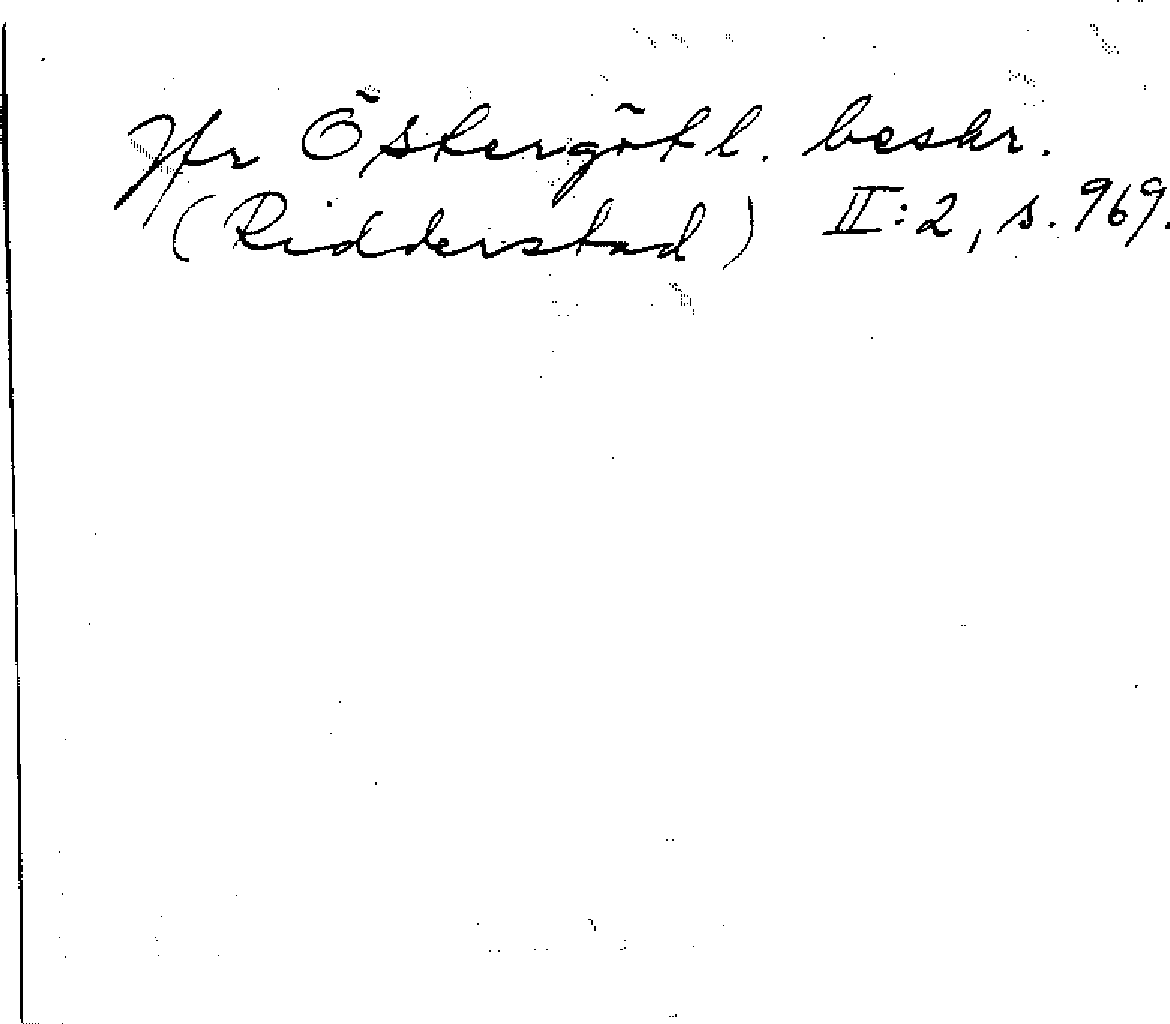 Jfr Östergötl. beskr.
(Ridderstad) II:2, s. 969.